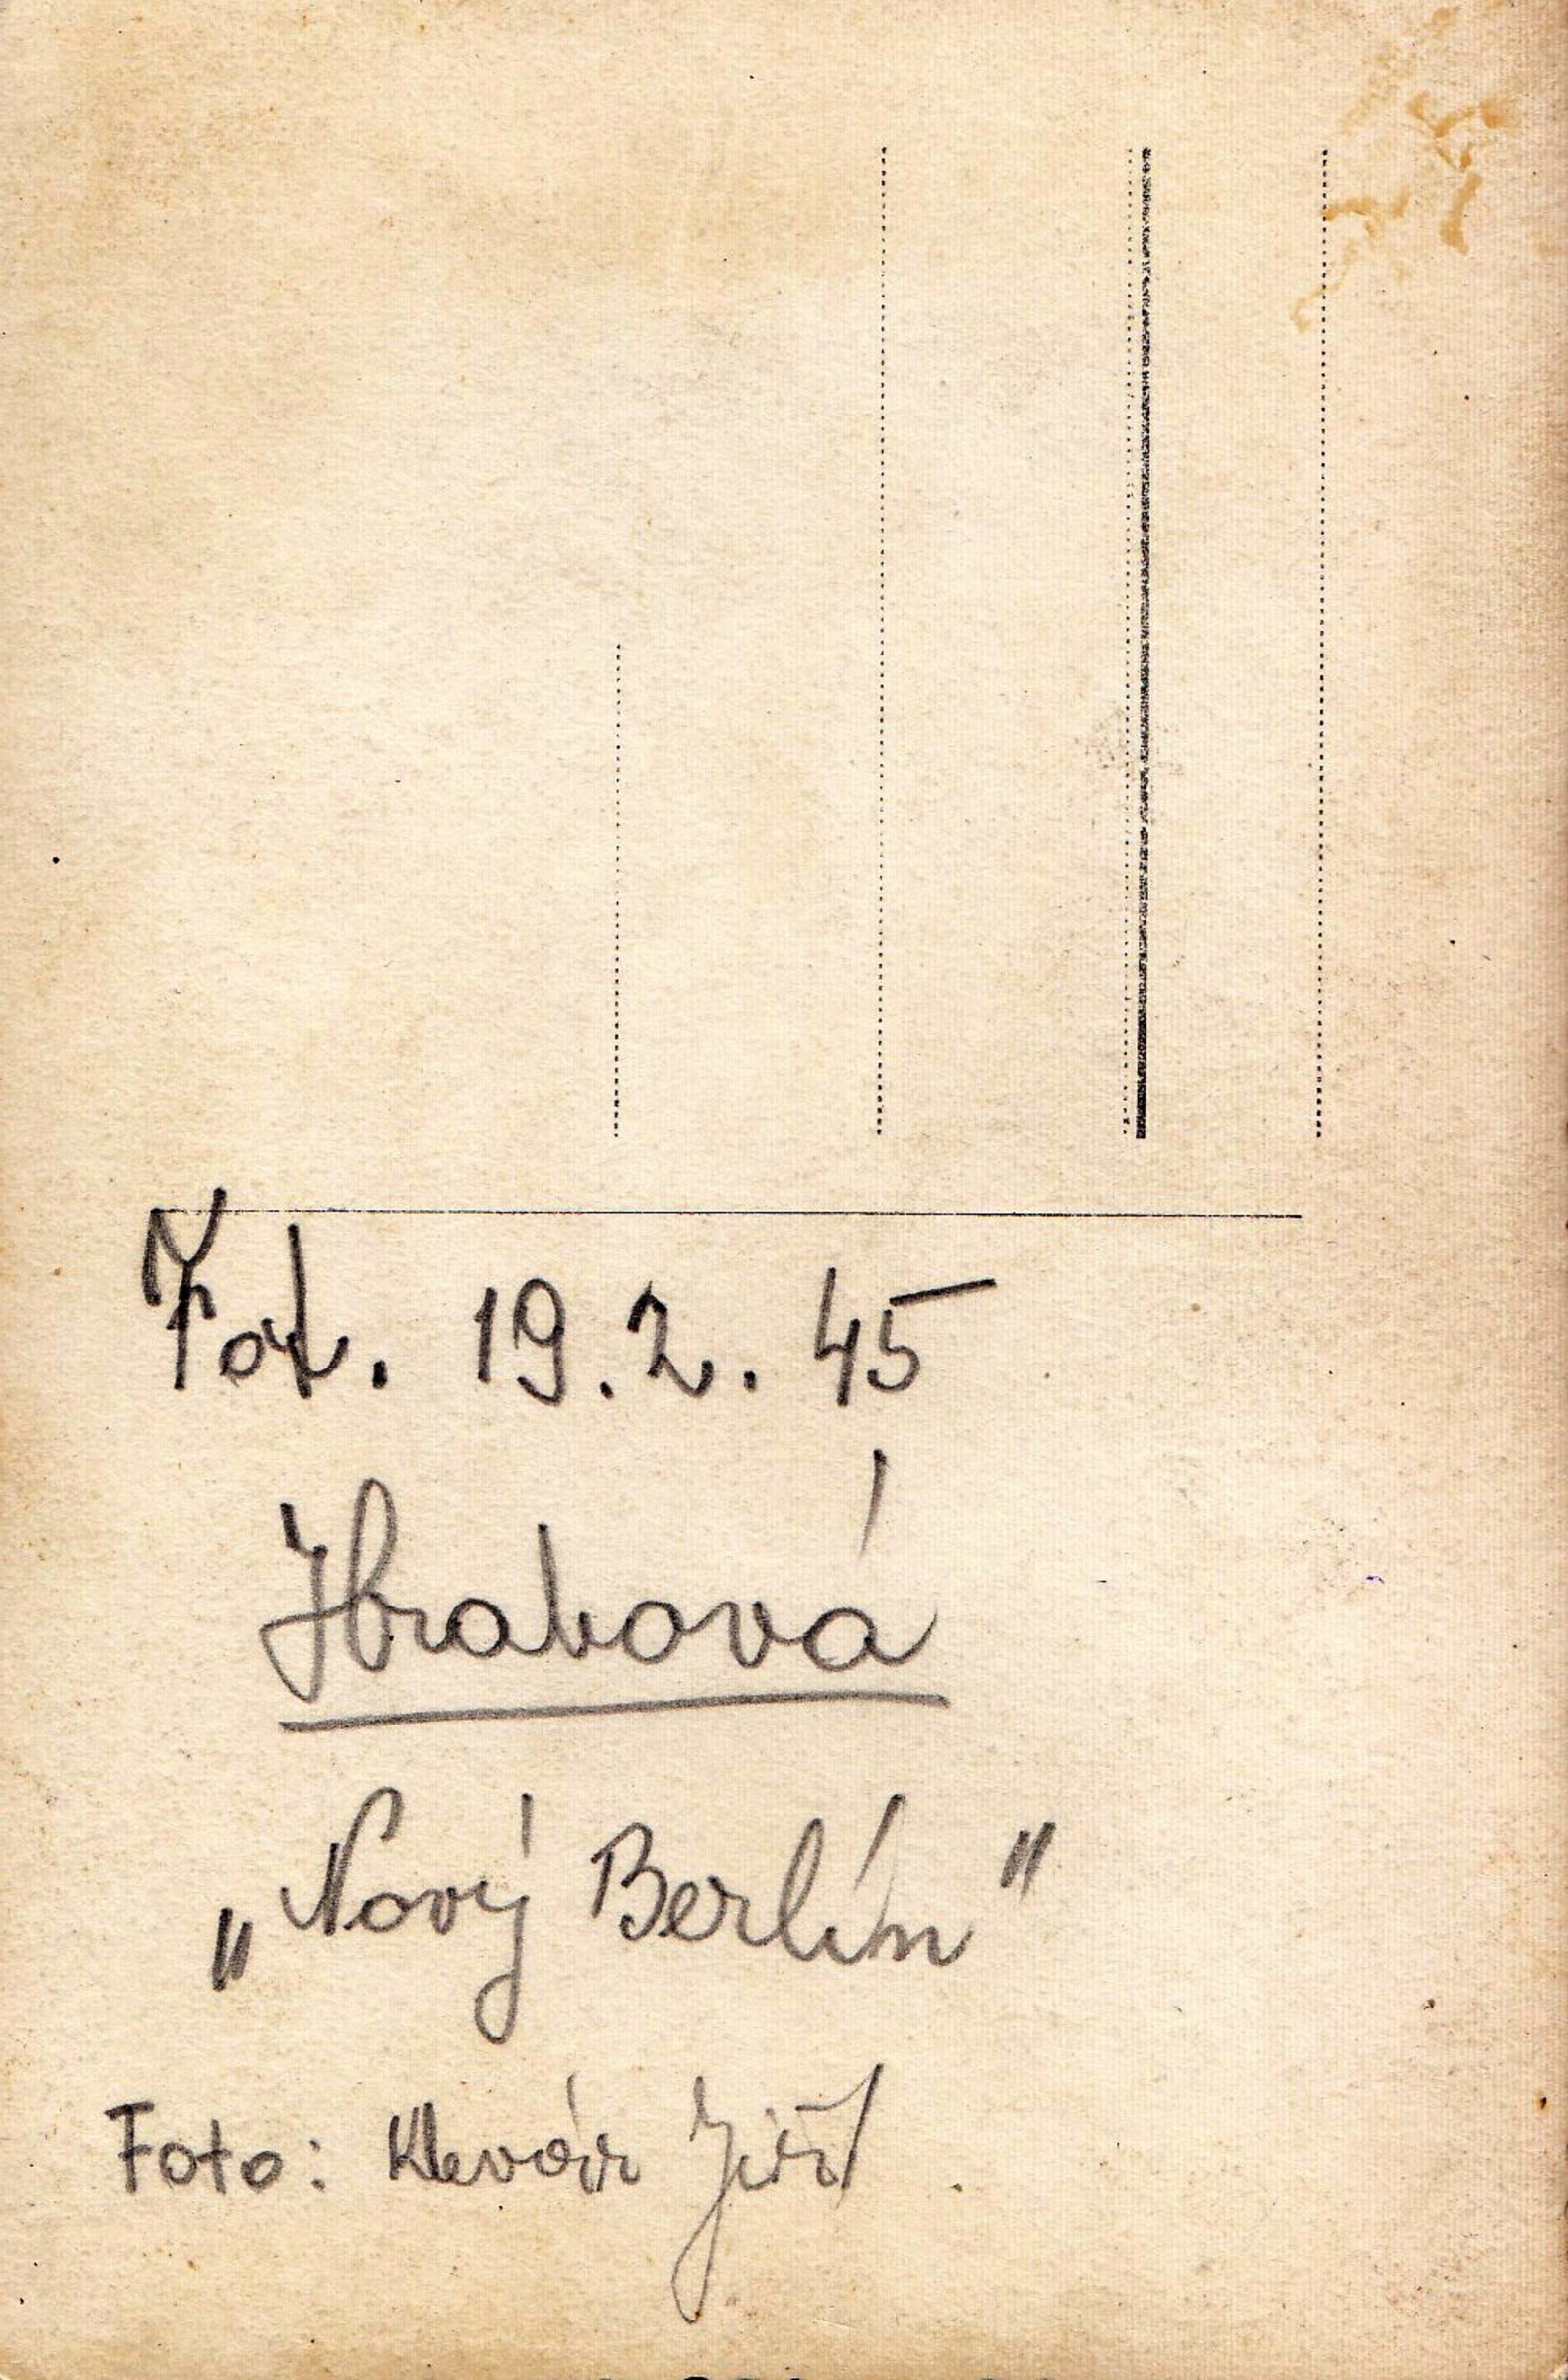 Fot. 19.2.45
Hrabová
„Nový Berlín"
Foto: Klevár Jiří